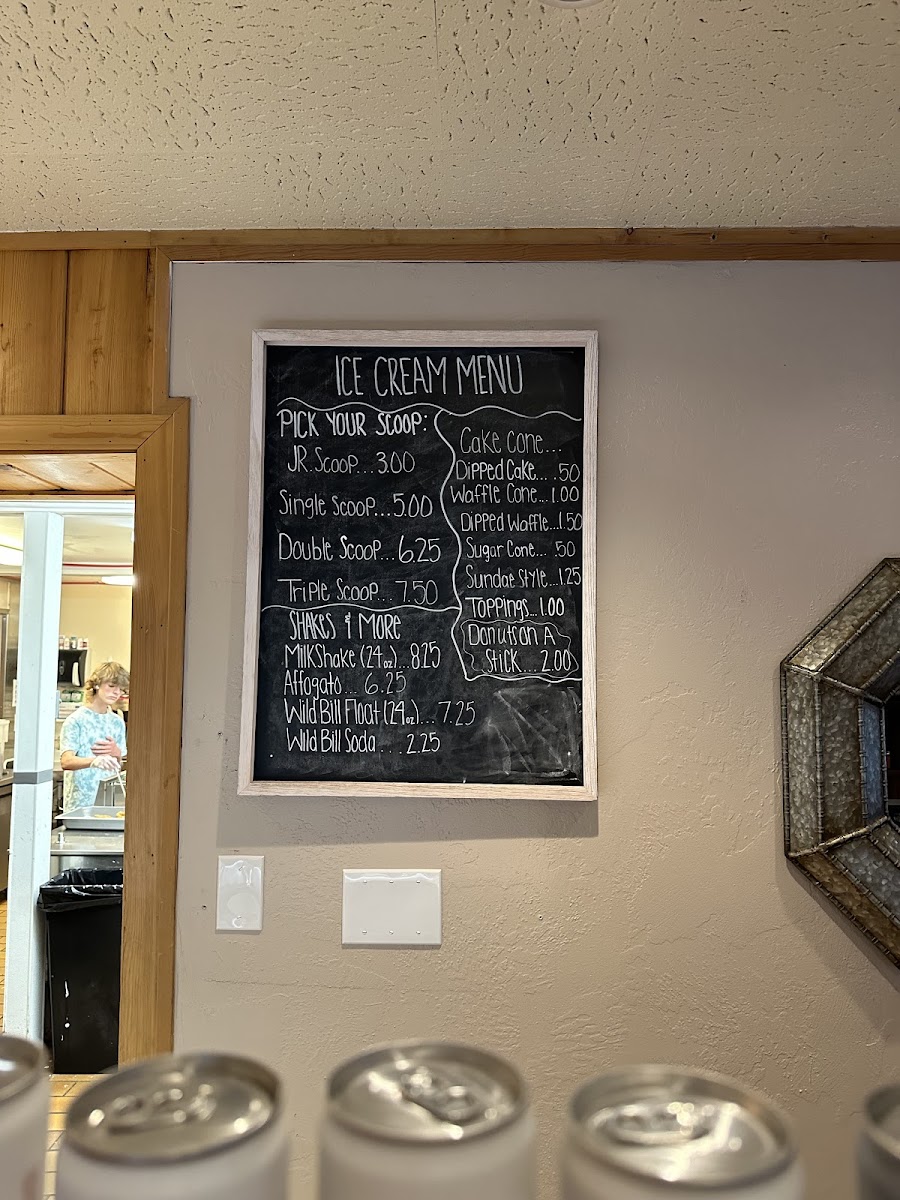 ICE CREAM MENU
PICK YOUR SCOOP:
JR. Scoop... 3.00
Single Scoop... 5.00
Double Scoop... 6.25
Triple Scoop... 7.50
SHAKES & MORE
MilkShake (24oz)... 8.25
Affogato... 6.25
Wild Bill Float (24oz)... 7.25
Wild Bill Soda... 2.25
Cake Cone...
Dipped Cake... .50
Waffle Cone... 1.00
Dipped Waffle... 1.50
Sugar Cone... .50
Sundae Style... 1.25
Toppings... 1.00
Donuts on A
Stick... 2.00